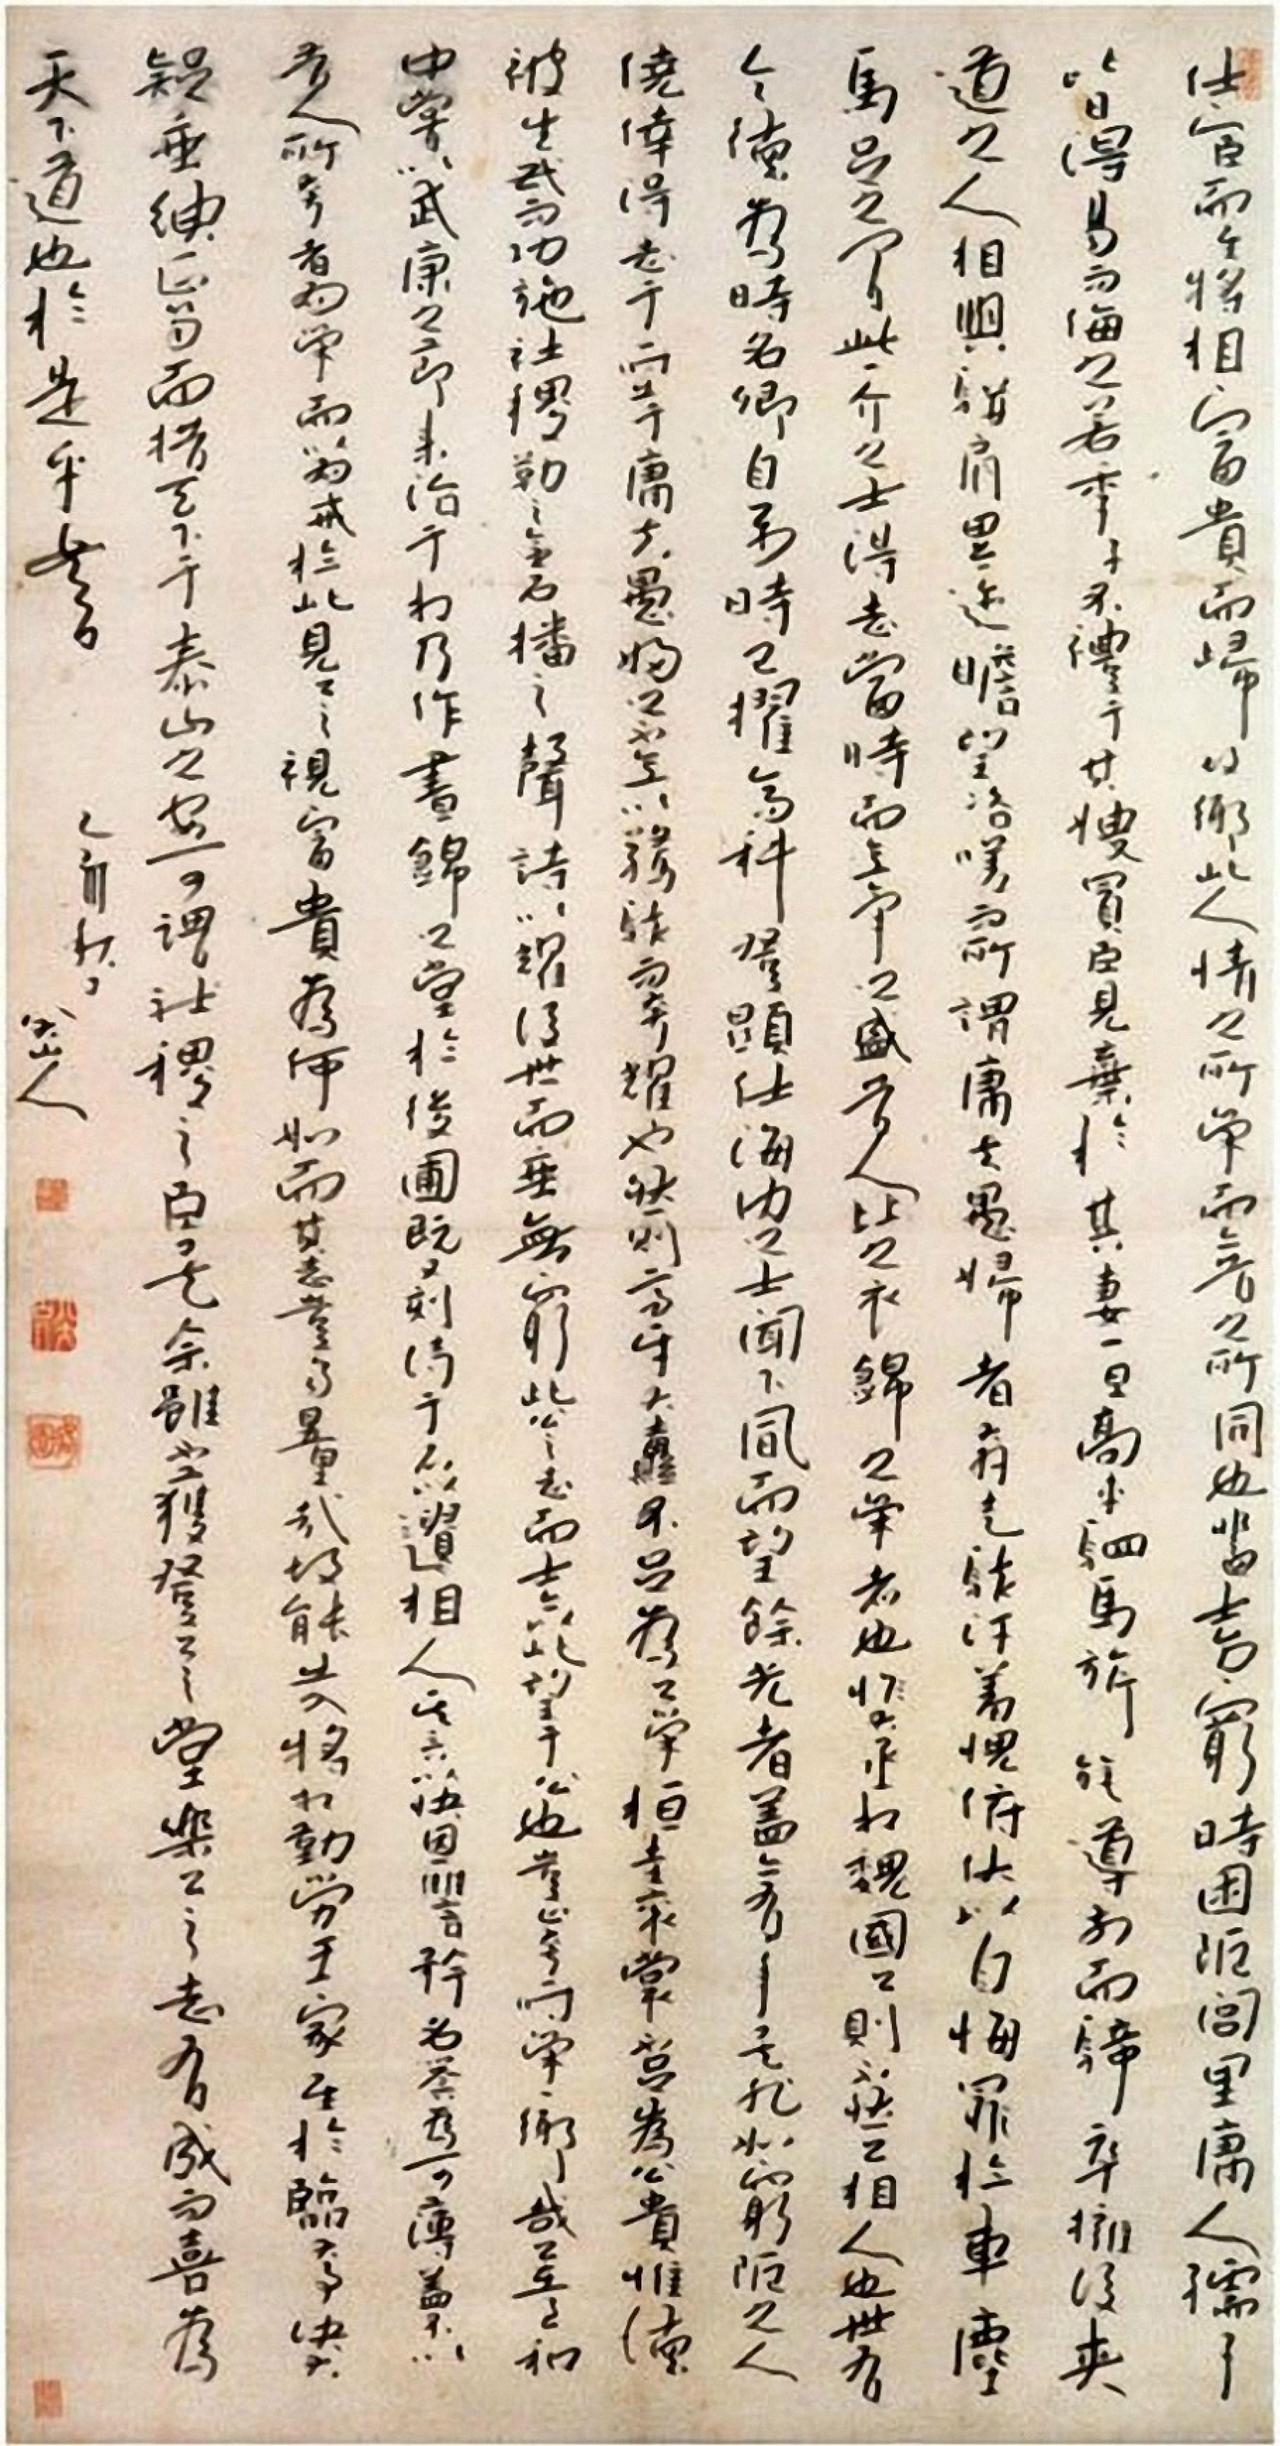 仕宦而至將相富貴而歸故鄉此人情之所榮而今昔之所同也蓋士方窮時困阨閭里庸人孺子
皆得易而侮之若季子不禮于其嫂買臣見棄於其妻一旦高車駟馬旗旄導前而騎卒擁後夾
道之人相與駢肩累迹瞻望咨嗟而所謂庸夫愚婦者奔走駭汗羞愧俯伏以自悔罪於車塵
馬足之間此一介之士得志當時而意氣之盛昔人比之衣錦之榮者也惟大丞相魏國公則不然公相人也世有
令德為時名卿自公時已擢高科登顯仕海內之士聞下風而望餘光者蓋亦有年矣非如窮阨之人
僥倖得志于而出于庸夫愚婦之不意以驚駭而夸耀也然則高牙大纛不足為公榮桓圭袞裳不足為公貴惟德
被生民而功施社稷勒之金石播之聲詩以耀後世而垂無窮此公之志而士亦以此望于公也豈止夸而榮一鄉哉公在至和
中嘗以武康之節來治于相乃作晝錦之堂於後圃既又刻詩于石以遺相人其言以快恩讎矜名譽為可薄蓋不以
昔人所夸者為榮而以為戒於此見公之視富貴為何如而其志豈易量哉故能出入將相勤勞王家至於臨大事決大
疑垂紳正笏而措天下于泰山之安可謂社稷之臣矣余雖不獲登公之堂樂公之志有成而喜為
天下道也於是乎書
乙亥秋日
八大山人